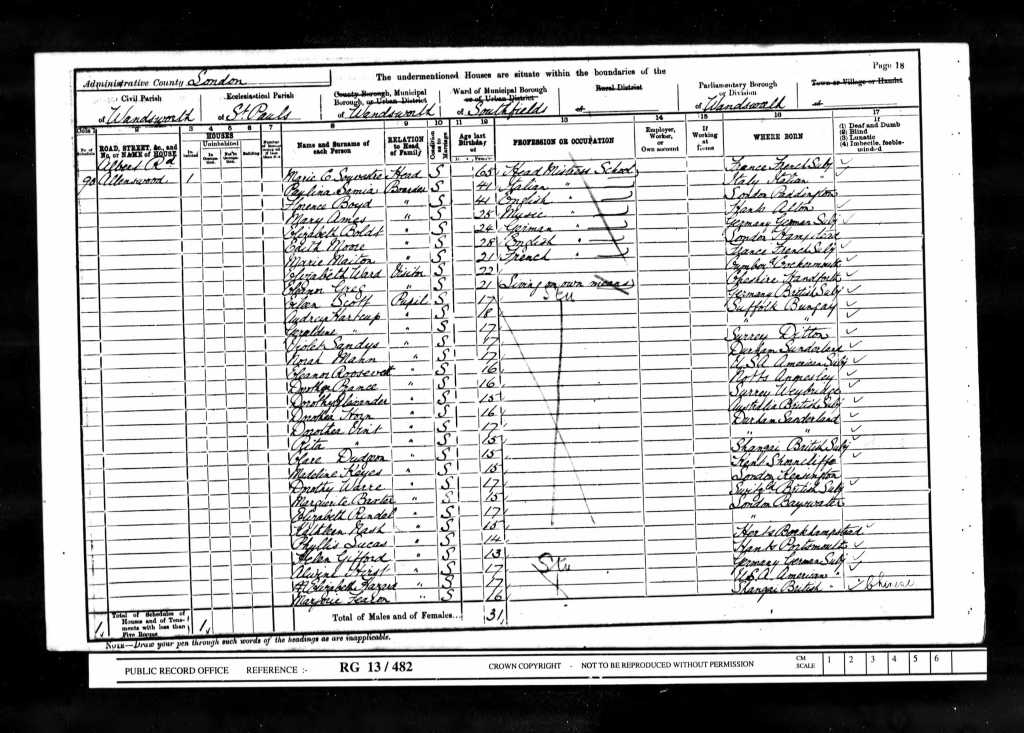 Page 18
The undermentioned Houses are situate within the boundaries of the
Administrative County London
Civil Parish of Wandsworth
Ecclesiastical Parish of St Pauls
County Borough, Municipal Borough, or Urban District of Wandsworth
Ward of Municipal Borough or of Urban District of Southfields
Rural District of
Parliamentary Borough or Division of Wandsworth
Town or Village or Hamlet of
No. of Schedule ROAD, STREET, &c., and No. or NAME of HOUSE HOUSES Inhabited Uninhabited In Occupation Not in Occupation Building Name and Surname of each Person RELATION to Head of Family Condition as to Marriage Age last Birthday of PROFESSION OR OCCUPATION Employer, Worker, or Own account If Working at Home WHERE BORN (1) Deaf and Dumb (2) Blind (3) Lunatic (4) Imbecile, feeble-minded
Albert Rd
90 Allenswood 1 Marie C Souvestre Head S 65 Head Mistress School France French Subj
Paulina Samia Boarder S 41 Italian " Italy Italian "
Florence Boyd " S 41 English " London Paddington
Mary Ames " S 25 Music " Hants Alton
Elizabeth Boldt " S 24 German " Germany German Subj
Edith Moore " S 28 English " London Hampstead
Marie Maiton " S 21 French " France French Subj
Elizabeth Ward Visitor S 22 Cockermouth
Eleanor Greg " S 21 Living on own means Cheshire Handforth
Scott Pupil S 17 Germany British Subj
Audrey Hartcup " S 18 Suffolk Bungay
Geraldine " " S 17 "
Violet Sandys " S 17 Surrey Ditton
Norah Mahn " S 17 Durham Sunderland
Eleanor Roosevelt " S 16 U.S.A American Subj
Dorothy Prance " S 16 Notts Annesley
Dorothy " S 15 Surrey Weybridge
Dorothea " S 16 Australia British Subj
Dorothea Vint " S 17 Durham Sunderland
Rita " " S 15 "
Clare Dudgeon " S 15 Shangai British Subj
Madeline Keyes " S 15 Kent Shorncliffe
Dorothy Warre " S 17 London Kensington
Marguerite Baxter " S 15 British Subj
Elizabeth Rendal " S 17 London Bayswater
Kathleen Nash " S 15 "
Phyllis Lucas " S 14 Herts Berkhampstead
Helen Gifford " S 13 Hants Portsmouth
Hirst " S 17 Germany German Subj
Elizabeth " S 17 U.S.A American "
Marjorie Fearon " S 16 Shangai British " Chinese
1 Total of Schedules of Houses and of Tenements with less than Five Rooms 1 Total of Males and of Females... 31
NOTE—Draw your pen through such words of the headings as are inapplicable.
PUBLIC RECORD OFFICE REFERENCE :- RG 13 / 482 CROWN COPYRIGHT - NOT TO BE REPRODUCED WITHOUT PERMISSION CM SCALE 1 2 3 4 5 6